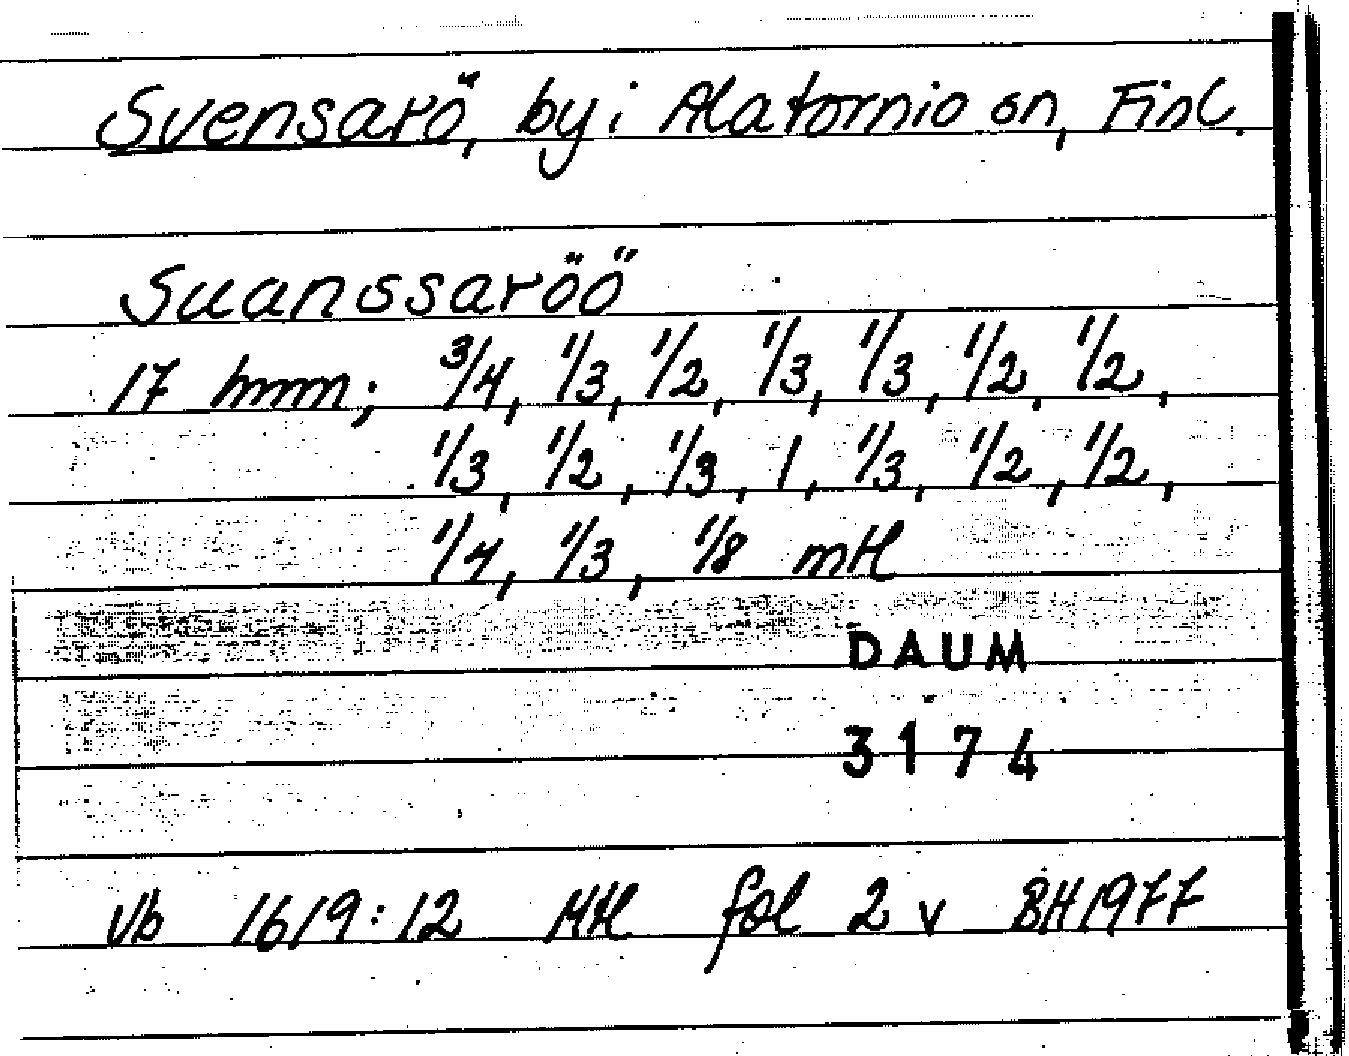 Svensarö, by i Alatornio sn, Finl.
Suanssaröö
17 hmm; 3/4, 1/3, 1/2, 1/3, 1/3, 1/2, 1/2,
1/3, 1/2, 1/3, 1, 1/3, 1/2, 1/2,
1/4, 1/3, 1/8 mtl
DAUM
3174
Vb 1619:12 Mtl fol 2 v BH1977